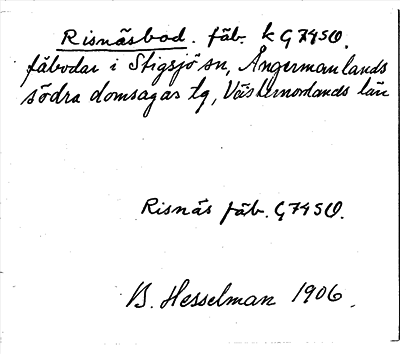 Risnäsbod. fäb. k G 74 SO.
fäbodar i Stigsjö sn, Ångermanlands
södra domsagas tg, Västernorrlands län
Risnäs fäb. G 74 SO.
B. Hesselman 1906.